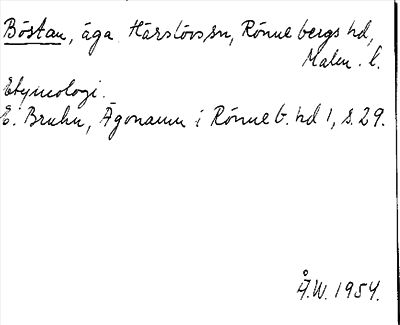 Böstan, äga. Härslövs sn, Rönnebergs hd,
Malm. l.
Etymologi.
E. Bruhn, Ägonamn i Rönneb. hd 1, s. 29.
Å.W. 1954.